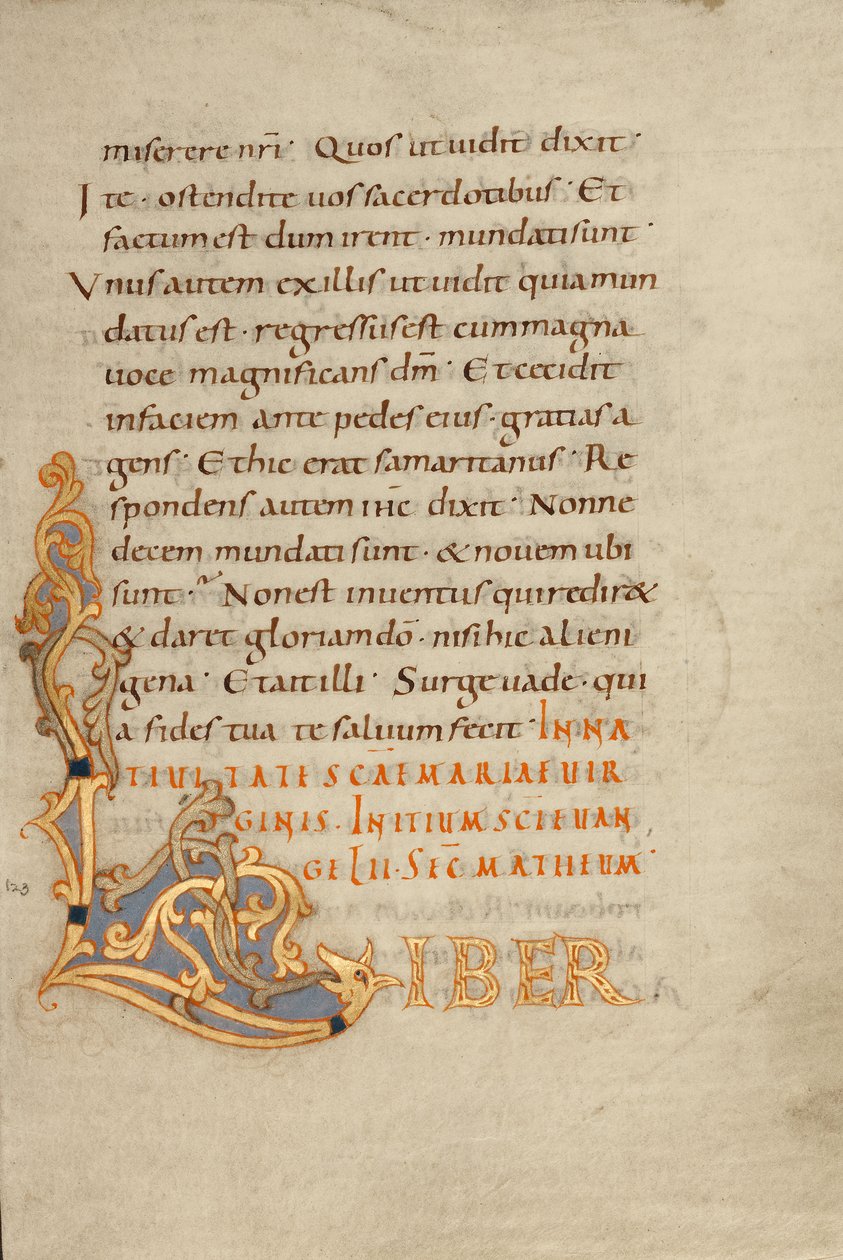 miserere nr̄i· Quos ut uidit dixit·
Ite· ostendite uos sacerdotibus· Et
factum est dum irent· mundati sunt·
Vnus autem ex illis ut uidit quia mun
datus est· regressus est cum magna
uoce magnificans dm̄· Et cecidit
in faciem ante pedes eius· gratias a
gens· Et hic erat samaritanus· Re
spondens autem ih̄c dixit· Nonne
decem mundati sunt· & nouem ubi
sunt· Non est inuentus qui redir&
& daret gloriam dō· nisi hic alieni
gena· Et ait illi· Surge uade· qui
a fides tua te saluum fecit· IN NA
TIUITATE SCĀE MARIAE UIR
GINIS· INITIUM SCĪ EUAN
GELII· SEC̄ MATHEUM·
LIBER
123